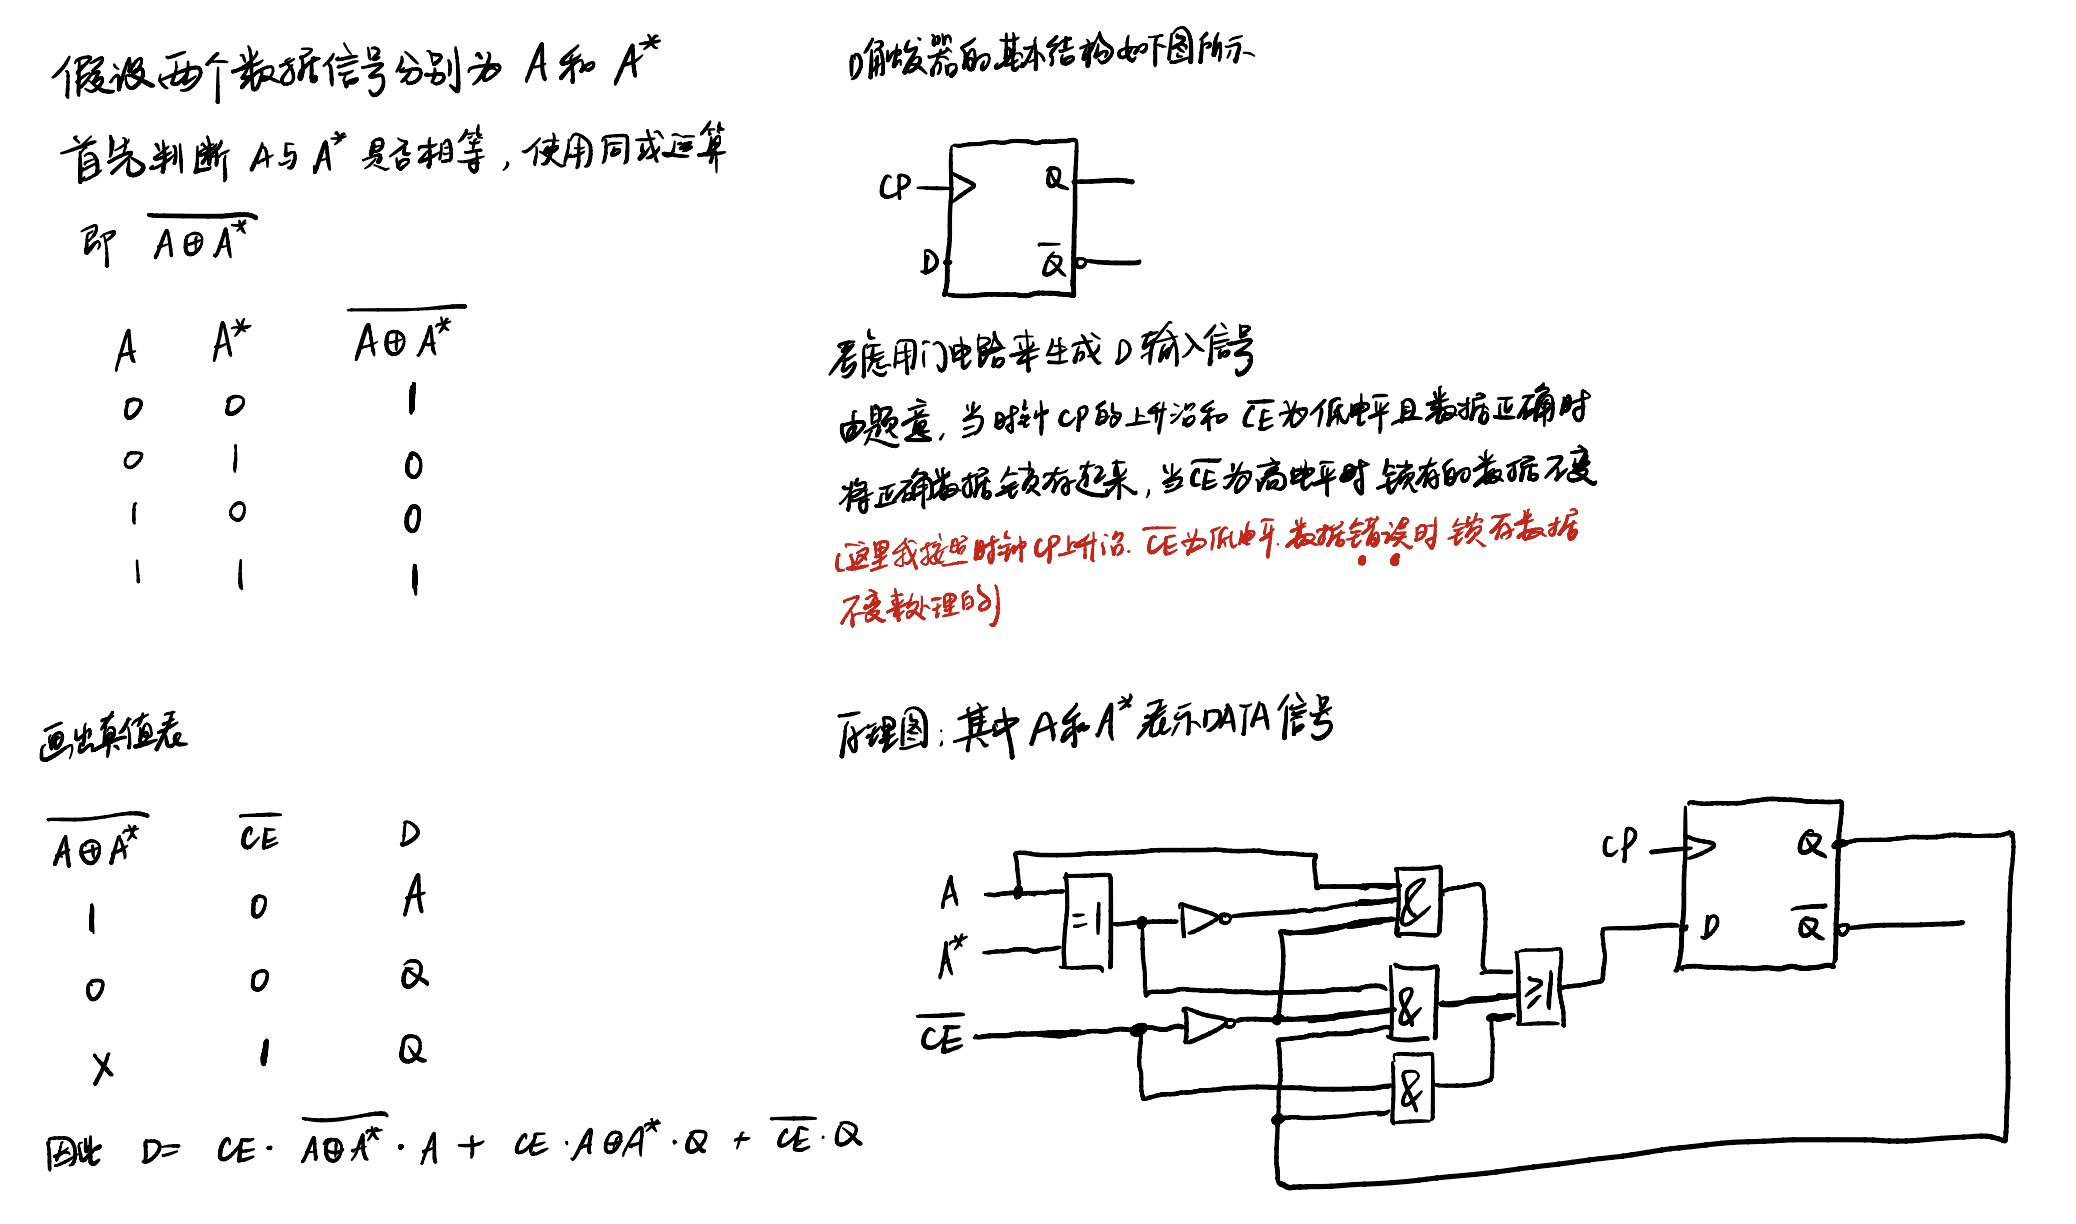 假设两个数据信号分别为 A 和 A*
首先判断 A与A* 是否相等，使用同或运算
即 \overline{A⊕A*}
A A* \overline{A⊕A*}
0 0 1
0 1 0
1 0 0
1 1 1
画出真值表
\overline{A⊕A*} \overline{CE} D
1 0 A
0 0 Q
X 1 Q
因此 D= CE·\overline{A⊕A*}·A + CE·A⊕A*·Q + \overline{CE}·Q
D触发器的基本结构如下图所示
CP Q
D \overline{Q}
考虑用门电路来生成 D 输入信号
由题意，当时钟 CP 的上升沿和 \overline{CE} 为低电平且数据正确时
将正确数据锁存起来，当\overline{CE}为高电平时 锁存的数据不变
(这里我按照时钟CP上升沿.\overline{CE}为低电平.数据错误时 锁存数据
不变来处理的)
原理图：其中 A和A* 表示DATA信号
CP Q
D \overline{Q}
A
A*
\overline{CE}
=1
&
&
&
≥1